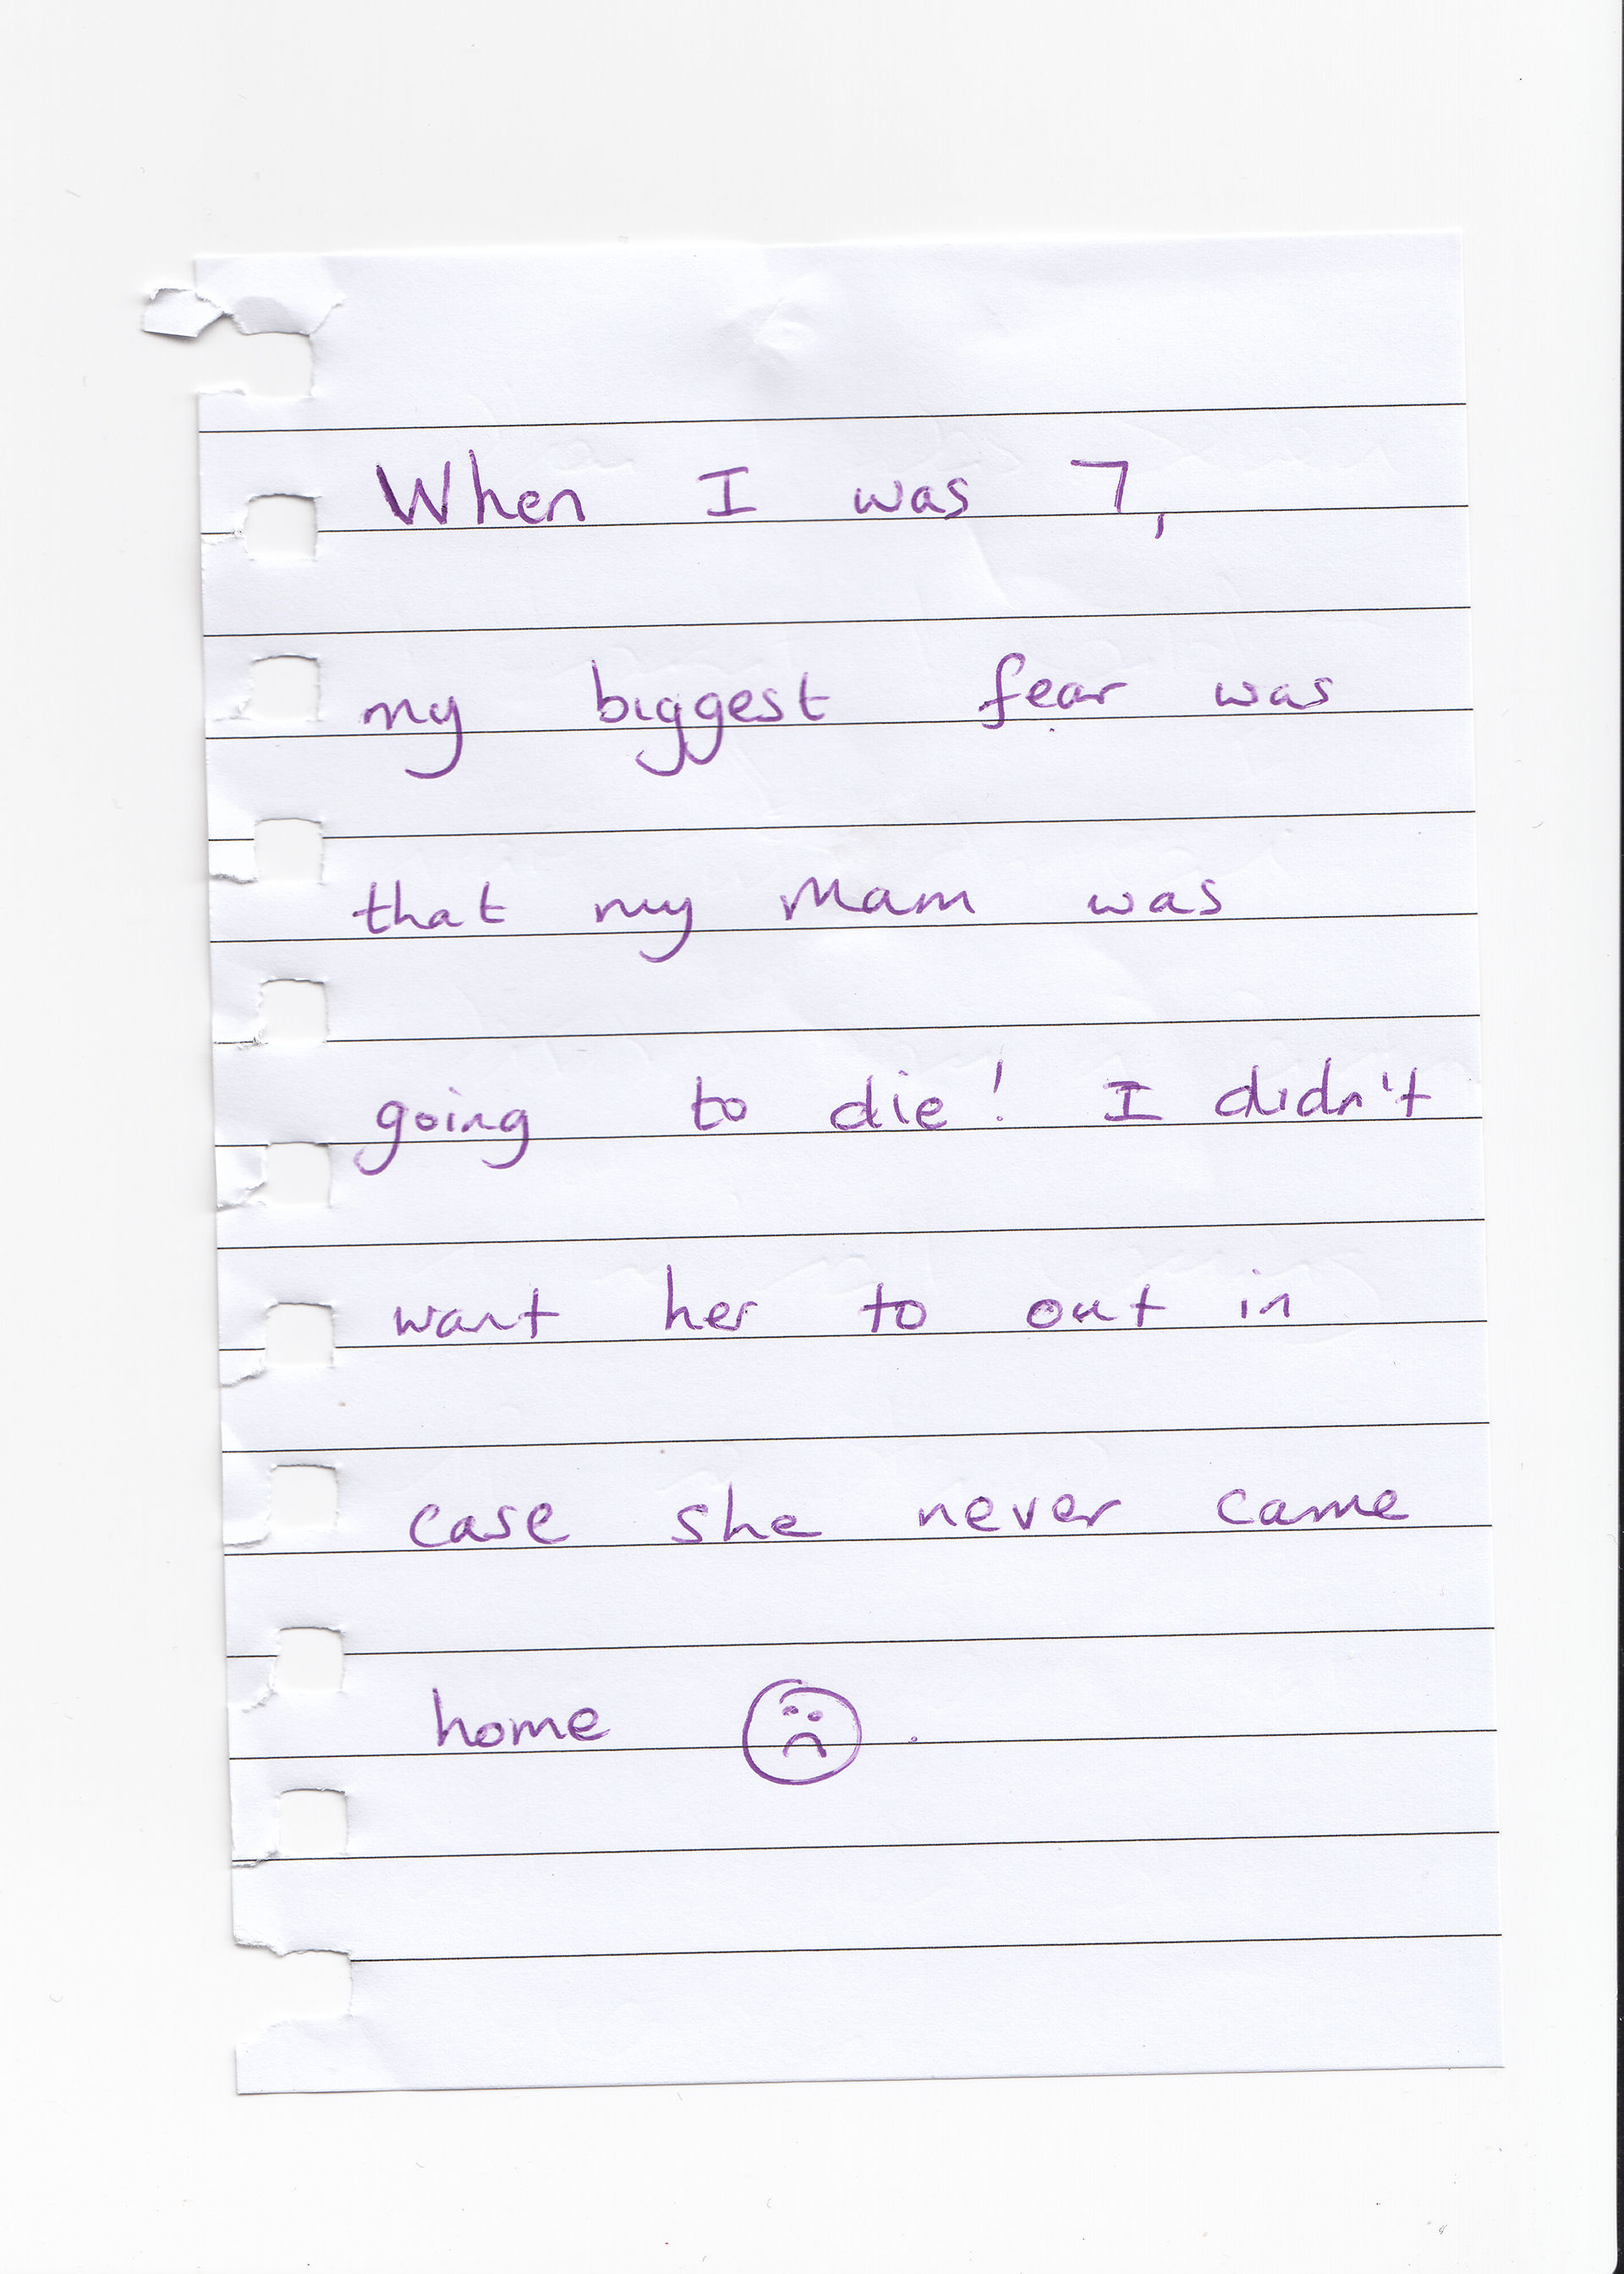 When I was 7,
my biggest fear was
that my Mam was
going to die! I didn't
want her to out in
case she never came
home ☹.